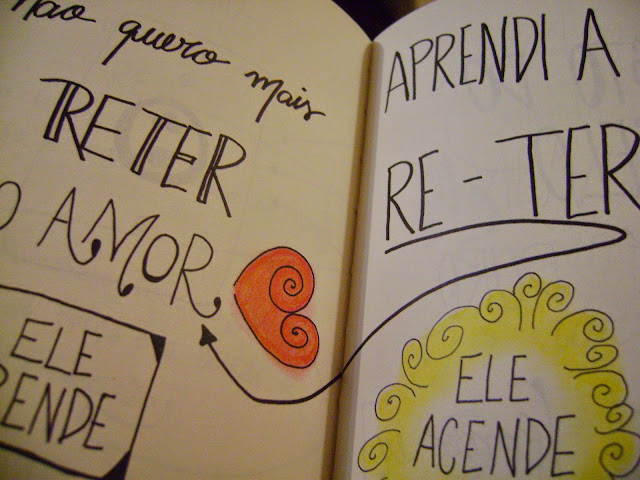 Não quero mais
RETER
O AMOR
ELE
RENDE
APRENDI A
RE-TER
ELE
ACENDE